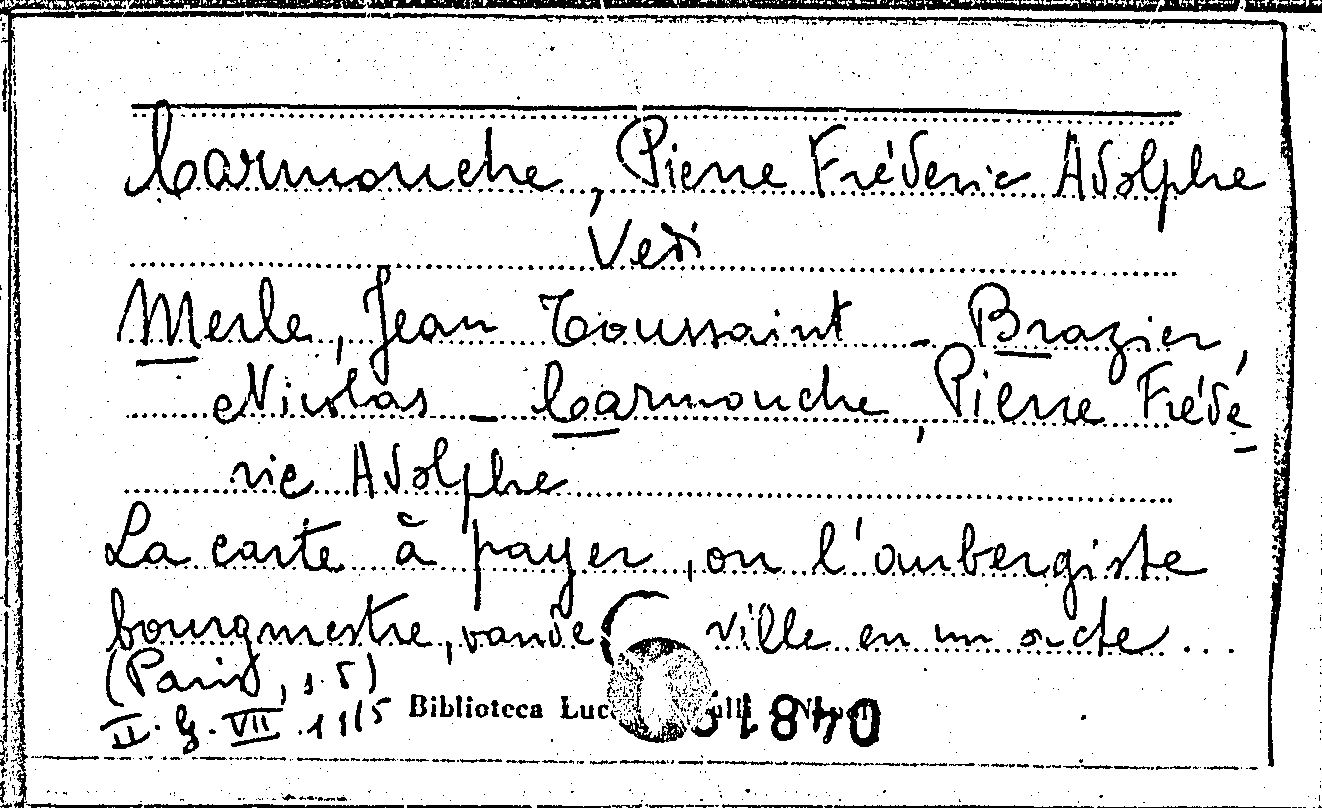 Carmouche, Pierre Fréderic Adolphe
Vedi
Merle, Jean Toussaint - Brazier,
Nicolas - Carmouche, Pierre Frédé-
ric Adolphe
La carte à payer, ou l'aubergiste
bourgmestre, vaude ville en un acte...
(Paris, s.d)
II. G. VII. 11/5 Biblioteca Luc